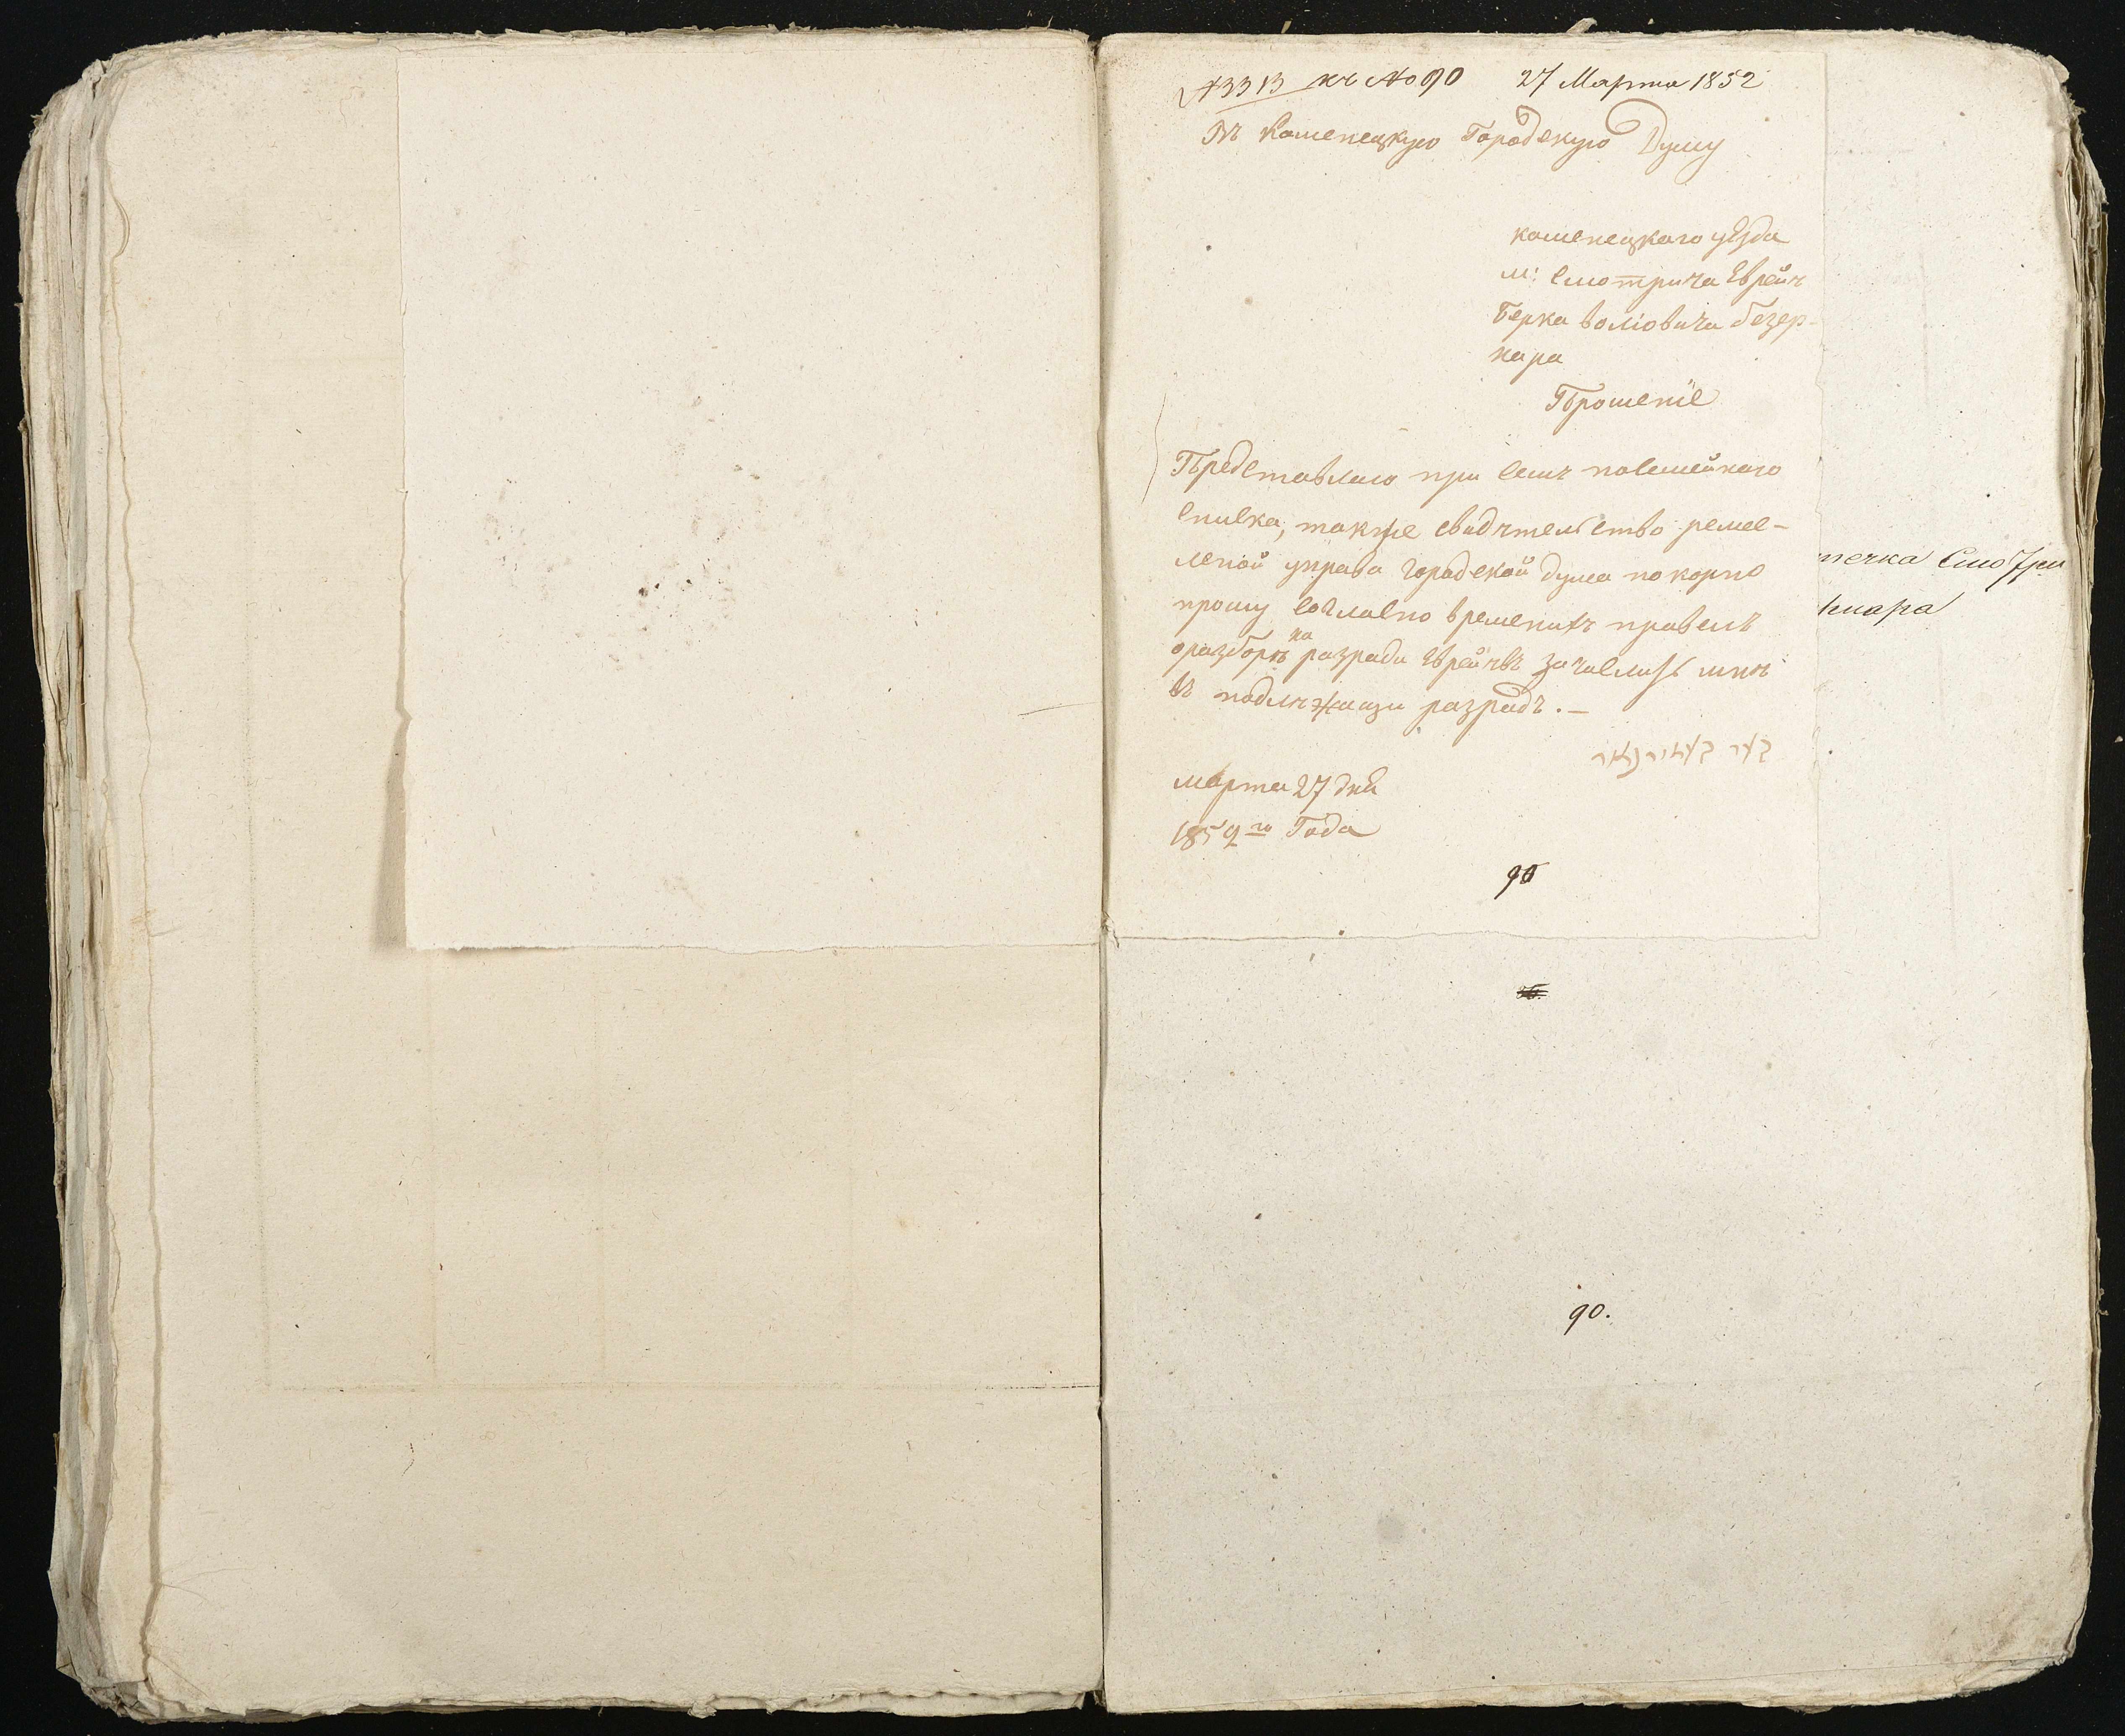 № 3313 къ № 90 27 Марта 1852
Въ Каменецкую Городскую Думу
каменецкаго уезда
м: Смотрича Еврейъ
Берка волховича безер-
нара
Прошеніе
Представляю при семъ посемейнаго
списка, также свидѣтельство ремес-
леной управа городской дума покорно
прошу согласно временихъ правелъ
оразборѣ на разради Еврейѣвъ зачислить мнѣ
въ подлѣжащи разрадъ. —
марта 27 дня
1852го Года
90
90.
течка Смотри
нара